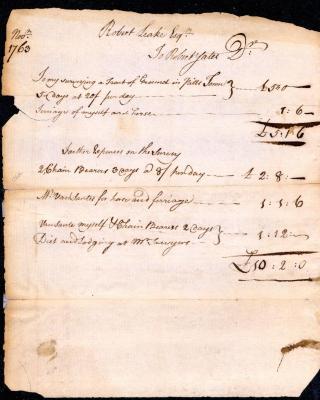 Nov.r
1763
Robert Leake Esq.r
To Robert Yates Dr.
To my surveying a Tract of Ground in Pitts Town
5 Days at 20/ per day £ 5:0:0
Ferriage of myself and horse 1:6
£5:1:6
Further Expences on the Survey
2 Chain Bearers 3 days @ 8/ per day £ 2:8:
Mr. for horse and ferriage 1:1:6
myself & Chain Bearers 2 Days
Diet and Lodging at Mr. 1:12
£10:2:0